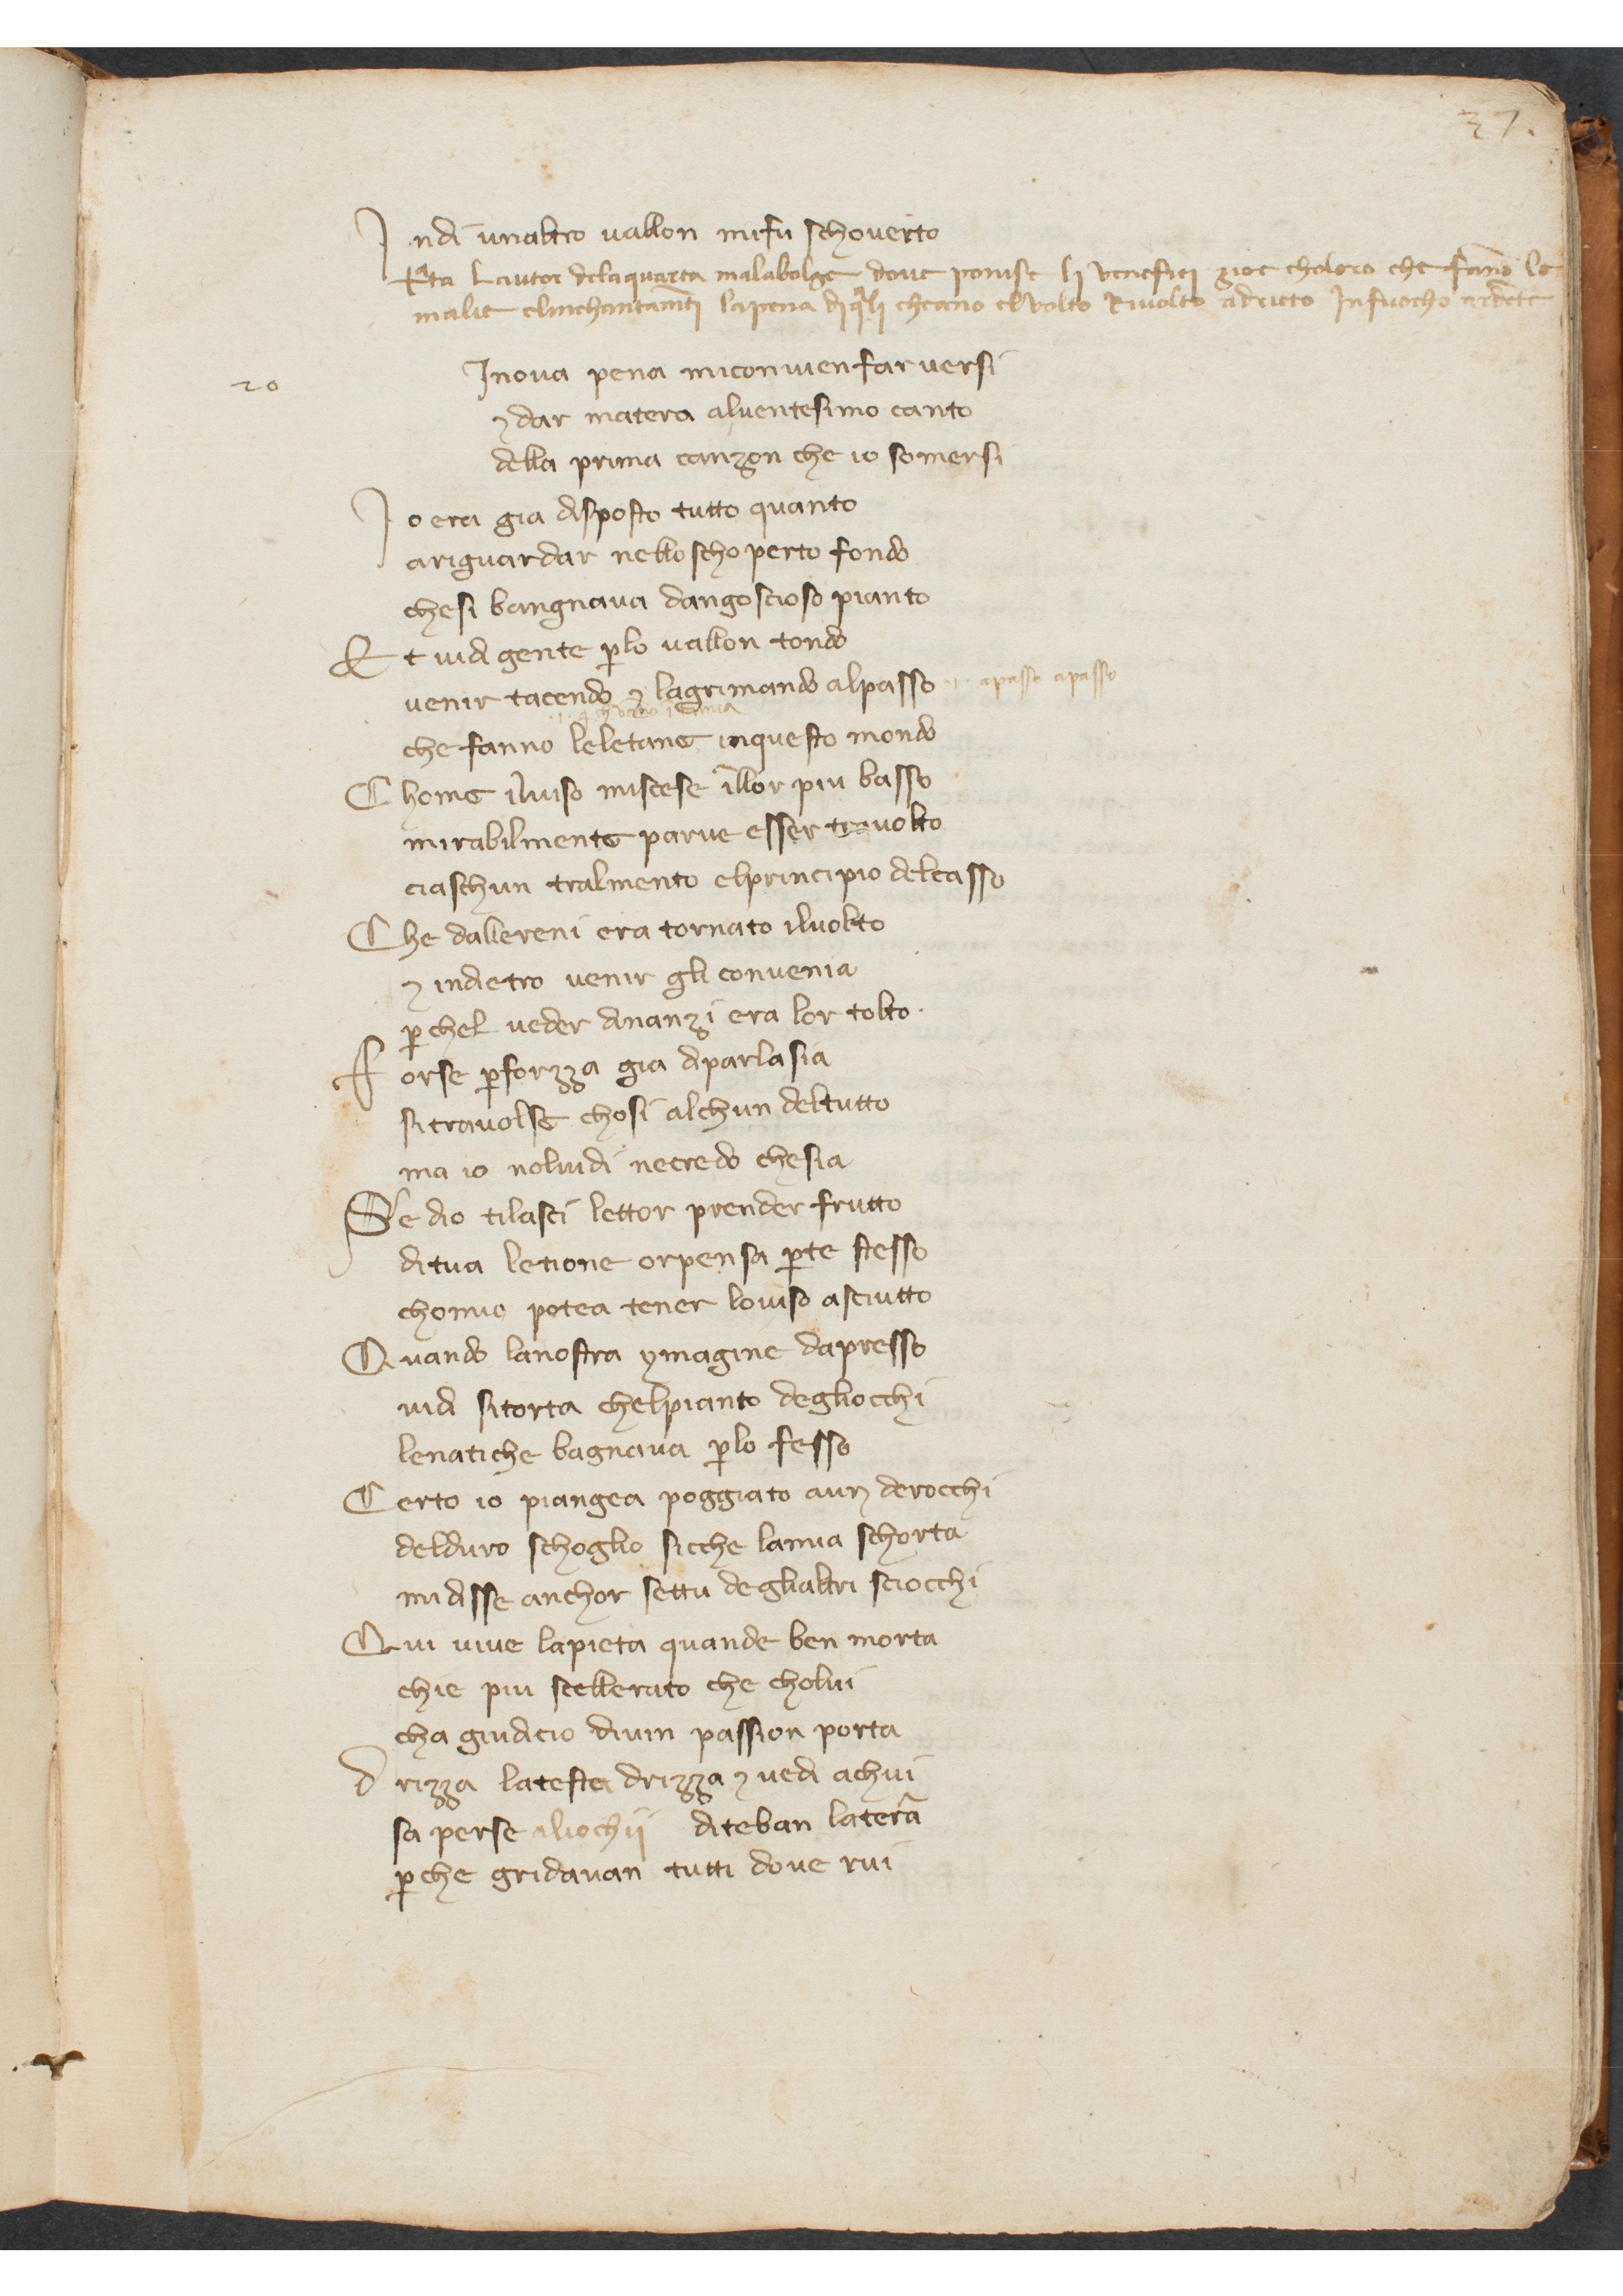 37.
Indi unaltro vallon mifu schoverto
Lautor delaquarta malabolge doue ponise li venefici zioe choloro che fano le
malie elinchantamti lapena diqli cheano el volto Riuolto adrieto Infuocho ardete
20
Inova pena miconvien far versi
⁊ dar matera alventesimo canto
della prima canzon che io somersi
Io era gia disposto tutto quanto
ariguardar nello schoperto fondo
chesi bangnava dangoscioso pianto
Et vidi gente plo vallon tondo
venir tacendo ⁊ lagrimando alpasso apasso apasso
che fanno leletane inquesto mondo
Chome ilviso miscese illor piu basso
mirabilmente parve esser travolto
ciaschun tralmento elprincipio delcasso
Che dallereni era tornato ilvolto
⁊ indietro venir gli convenia
pchel veder dinanzi era lor tolto.
Forse pforzza gia diparlasia
sitravolse chosi alchun deltutto
ma io nolvidi necredo chesia
Se dio tilasci lettor prender frutto
ditua letione orpensa pte stesso
chomio potea tener loviso asciutto
Quando lanostra ymagine dapresso
vidi sitorta chelpianto degliocchi
lenatiche bagnava plo fesso
Certo io piangea poggiato aun derocchi
delduro schoglio sicche lamia schorta
midisse anchor settu deglialtri sciocchi
Qui vive lapieta quande ben morta
chie piu scellerato che cholui
cha giudicio divin passion porta
drizza latesta drizza ⁊ vedi achui
sa perse aliochij diteban laterra
pche gridavan tutti dove rui